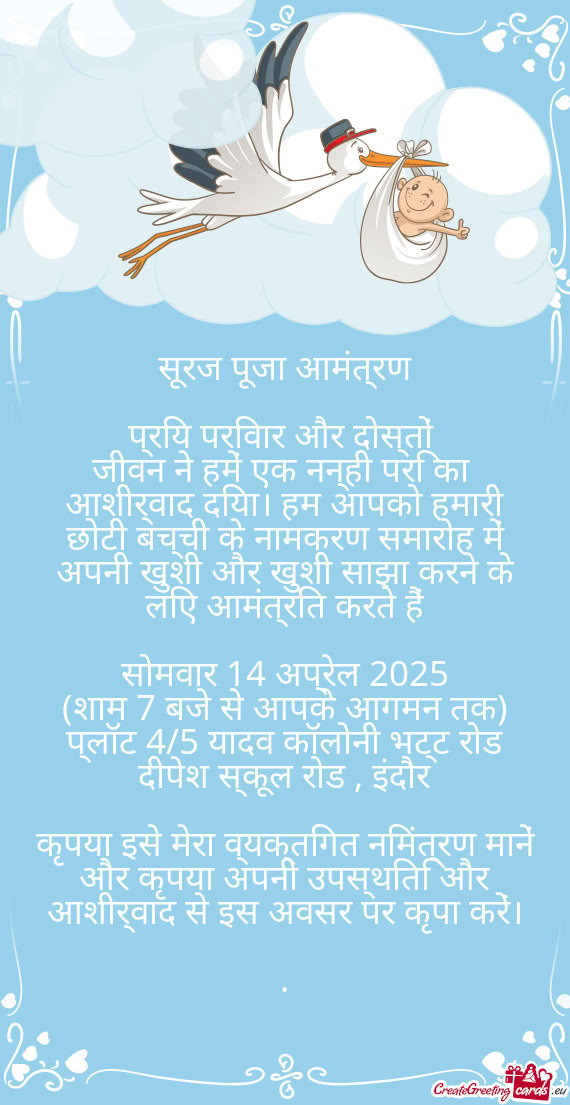 सूरज पूजा आमंत्रण
प्रिय परिवार और दोस्तों
जीवन ने हमें एक नन्ही परी का
आशीर्वाद दिया। हम आपको हमारी
छोटी बच्ची के नामकरण समारोह में
अपनी खुशी और खुशी साझा करने के
लिए आमंत्रित करते हैं
सोमवार 14 अप्रेल 2025
(शाम 7 बजे से आपके आगमन तक)
प्लॉट 4/5 यादव कॉलोनी भट्ट रोड
दीपेश स्कूल रोड , इंदौर
कृपया इसे मेरा व्यक्तिगत निमंत्रण मानें
और कृपया अपनी उपस्थिति और
आशीर्वाद से इस अवसर पर कृपा करें।
.
CreateGreetingcards.eu